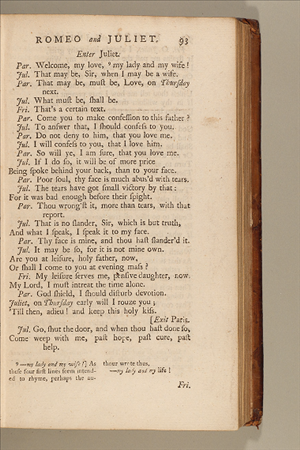 ROMEO and JULIET. 93
Enter Juliet.
Par. Welcome, my love, ⁹ my lady and my wife!
Jul. That may be, Sir, when I may be a wife.
Par. That may be, muſt be, Love, on Thurſday
next.
Jul. What muſt be, ſhall be.
Fri. That's a certain text.
Par. Come you to make confeſſion to this father?
Jul. To anſwer that, I ſhould confeſs to you.
Par. Do not deny to him, that you love me.
Jul. I will confeſs to you, that I love him.
Par. So will ye, I am ſure, that you love me.
Jul. If I do ſo, it will be of more price
Being ſpoke behind your back, than to your face.
Par. Poor ſoul, thy face is much abus'd with tears.
Jul. The tears have got ſmall victory by that:
For it was bad enough before their ſpight.
Par. Thou wrong'ſt it, more than tears, with that
report.
Jul. That is no ſlander, Sir, which is but truth,
And what I ſpeak, I ſpeak it to my face.
Par. Thy face is mine, and thou haſt ſlander'd it.
Jul. It may be ſo, for it is not mine own.
Are you at leiſure, holy father, now,
Or ſhall I come to you at evening maſs?
Fri. My leiſure ſerves me, penſive daughter, now.
My Lord, I muſt intreat the time alone.
Par. God ſhield, I ſhould diſturb devotion.
Juliet, on Thurſday early will I rouze you;
'Till then, adieu! and keep this holy kiſs.
[Exit Paris.
Jul. Go, ſhut the door, and when thou haſt done ſo,
Come weep with me, paſt hope, paſt cure, paſt
help.
⁹ —my lady and my wife!] As
theſe four firſt lines ſeem intend-
ed to rhyme, perhaps the au-
thour wrote thus,
—my lady and my life!
Fri.